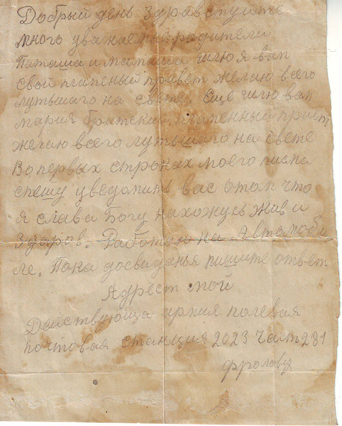 Добрый день Здравствуйте
много уважаемые родители
Папаша и мамаша шлю я вам
свой пламеный привет желаю всего
лутьшаго на свете. Еще шлю вам
мария пламеный привет
желаю всего лутьшаго на свете
Во первых строках моего писма
спешу уведомить вас отом что
я слава Богу нахожусь жив и
здоров. Работаю на Автомоби
ле. Пока досвиданья пишите ответ.
Адрест мой
Действующа армия полевая
почтовая станция 2023 Част 281
Фролову